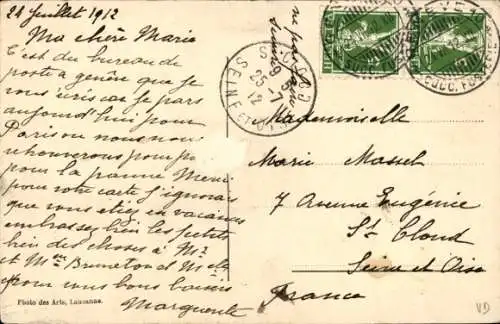 24 juillet 1912
Ma chère Marie
C'est du bureau de
poste a genève que je
vous écris car je pars
aujourd'hui pour
Paris ou nous nous
retrouverons
pour la panne Merci
pour votre carte J'ignorais
que vous étiez en vacances
embrasses bien les petits
bien des choses à Mr
et Mme Bruneton et Mlle
pour vous bons baisers
Marguerite
Photo des Arts, Lausanne.
ne pas faire
suivre
SEINE ET OISE
23 -7
12
HELVETIA
HELVETIA
Mademoiselle
Marie Massel
7 Avenue Eugénie
St Cloud
Seine et Oise
France
VD